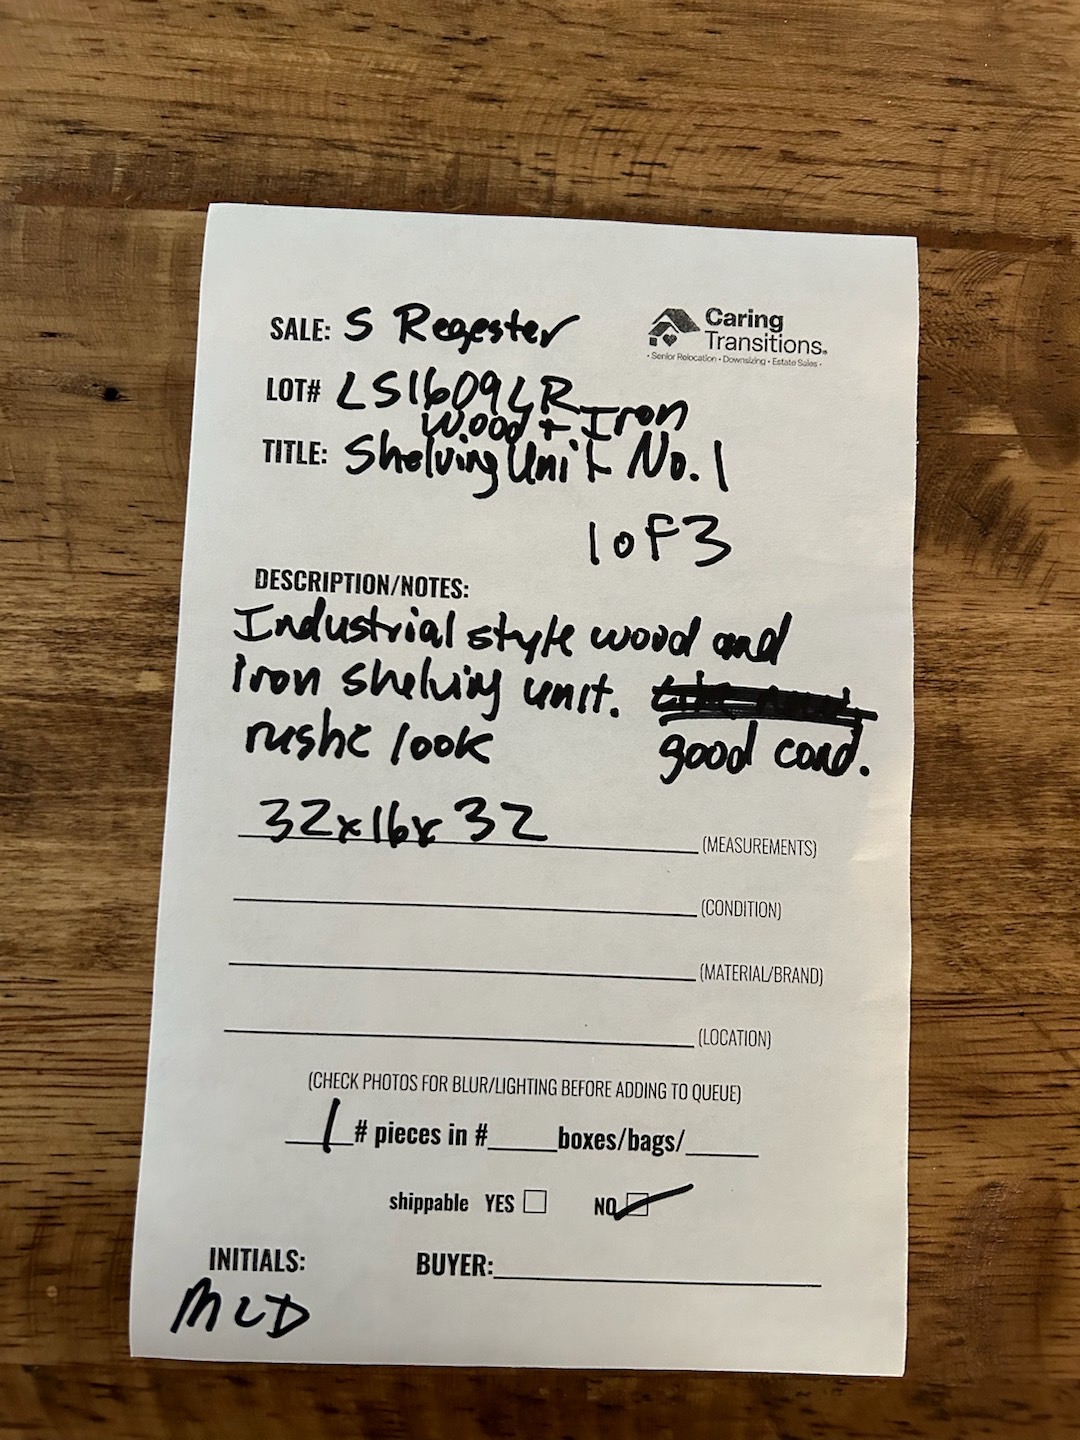 SALE: S Regester
Caring
Transitions®
• Senior Relocation • Downsizing • Estate Sales •
LOT# LS1609LR
Wood + Iron
TITLE: Shelving Unit No. 1
1 of 3
DESCRIPTION/NOTES:
Industrial style wood and
Iron shelving unit.
rustic look good cond.
32x16x32 (MEASUREMENTS)
(CONDITION)
(MATERIAL/BRAND)
(LOCATION)
(CHECK PHOTOS FOR BLUR/LIGHTING BEFORE ADDING TO QUEUE)
1 # pieces in # boxes/bags/
shippable YES NO
INITIALS: BUYER:
MLD